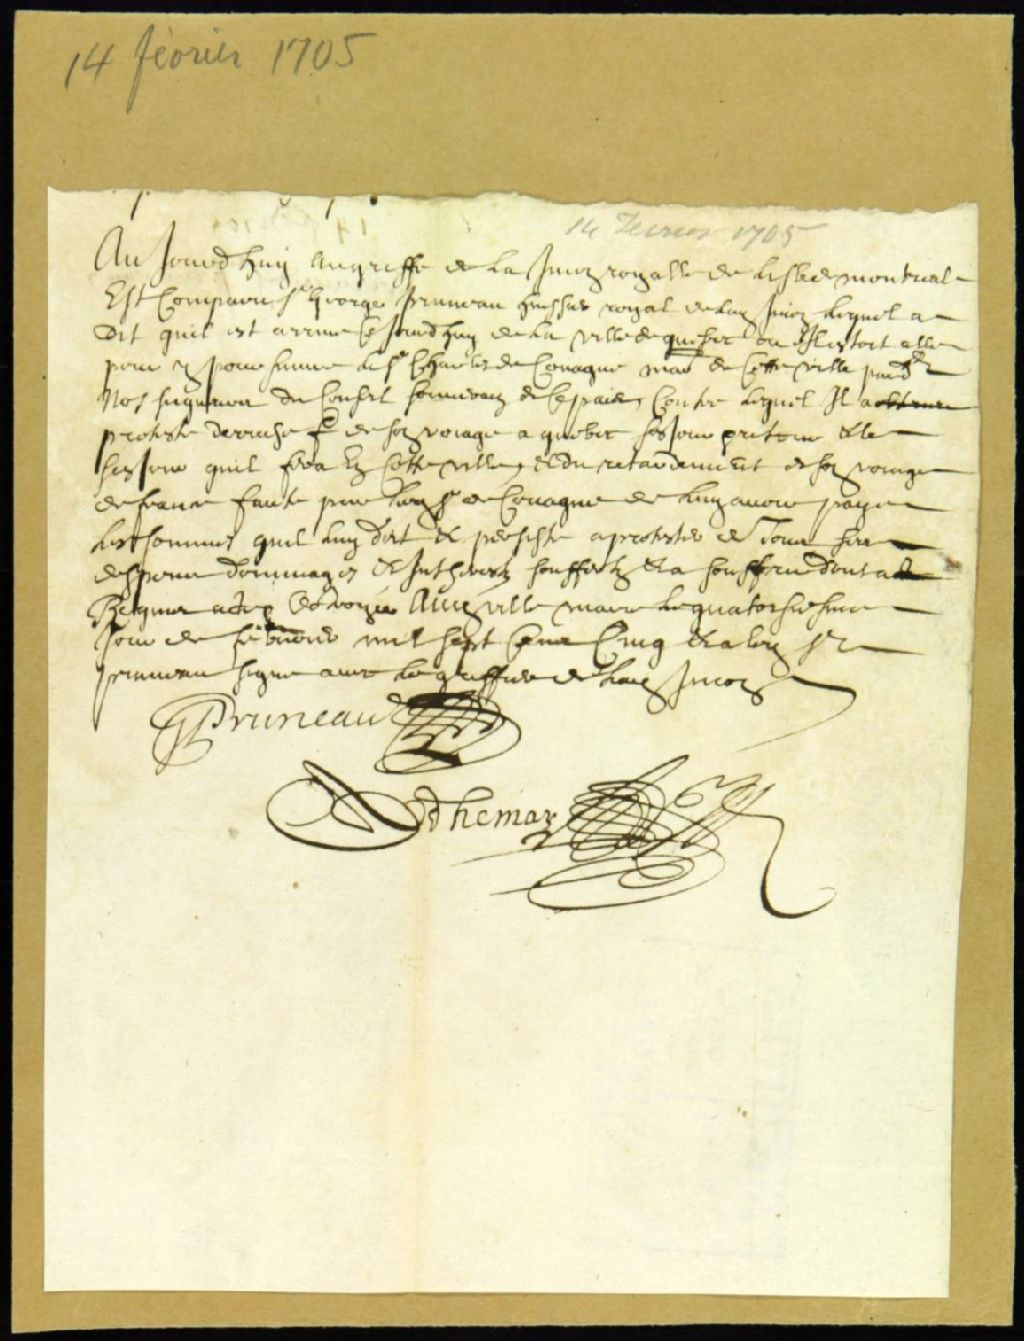 14 février 1705
14 Fevrier 1705
Au Jourdhuy au greffe de la Juri͠on royalle de lisle de montreal
Est Comparu Sr George pruneau huissier royal de lad Juri͠on lequel a
dit quil est arrivé ce Jourdhuy de la ville de quebec ou Il estoit allé
pour y poursuivre le Sr Charles de Couagne mar de Cette ville pard
Nosseigneurs du Conseil souverain de ce païs Contre lequel Il a
proteste de son voiage a quebec sejour
sejour quil fera En Cette ville et du retardement de son voiage
de france faute par led Sr de Couagne de luy avoir payé
les sommes quil luy doit et persiste a protester de tous
despens dommages et Interests soufferts et a souffrir dont acte
Requis acte Aud ville marie le quatorsiesme
Jour de febvrier mil sept Cent Cinq et a led Sr
pruneau signé avec le greffier de lad Juri͠on
Pruneau
Adhemar